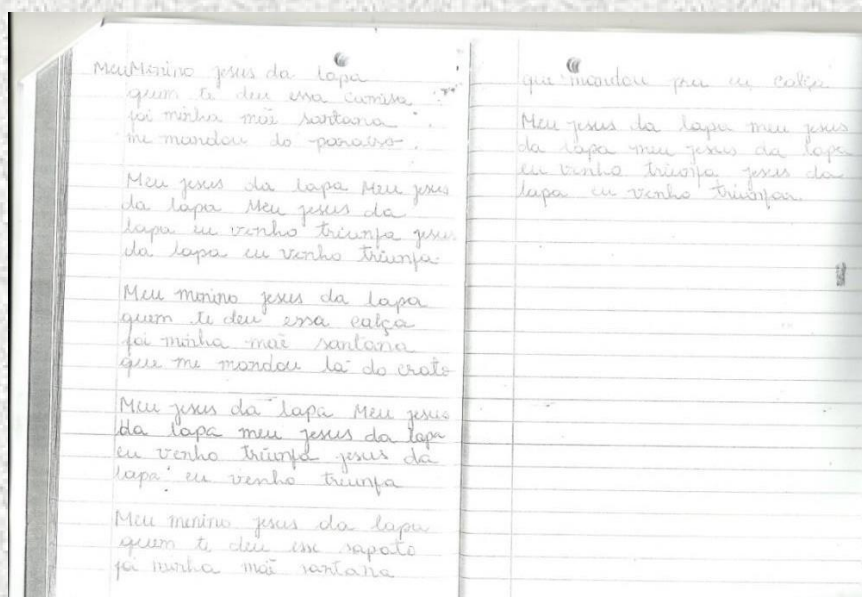 Meu Menino jesus da lapa
quem te deu essa camisa
foi minha mãe santana
me mandou do paraiso.
Meu jesus da lapa Meu jesus
da lapa Meu jesus da
lapa eu venho triunfa jesus
da lapa eu venho triunfa
Meu menino jesus da lapa
quem te deu essa calça
foi minha mãe santana
que me mandou la do crato
Meu jesus da lapa Meu jesus
da lapa meu jesus da lapa
eu venho triunfa jesus da
lapa eu venho triunfa
Meu menino jesus da lapa
quem te deu esse sapato
foi minha mãe santana
que mandou pra eu calça
Meu jesus da lapa meu jesus
da lapa meu jesus da lapa
eu venho triunfa jesus da
lapa eu venho triunfar.